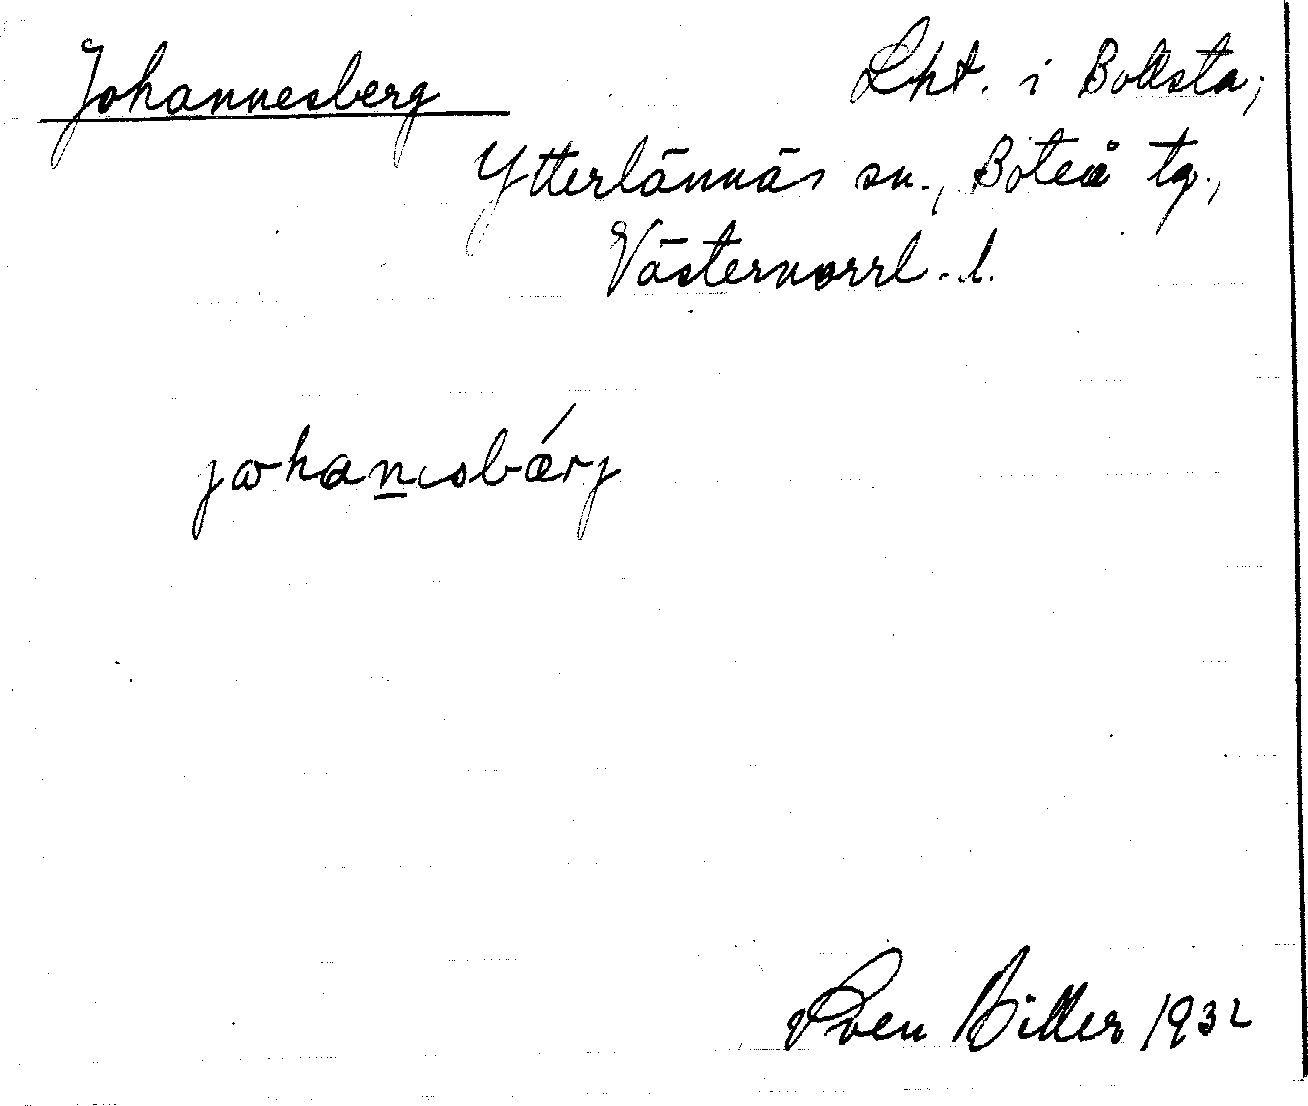 Johannesberg Lht. i Bollsta,
Ytterlännäs sn., Boteå tg.,
Västernorrl. l.
johan̲ısbǽrj
Sven Biller 1932